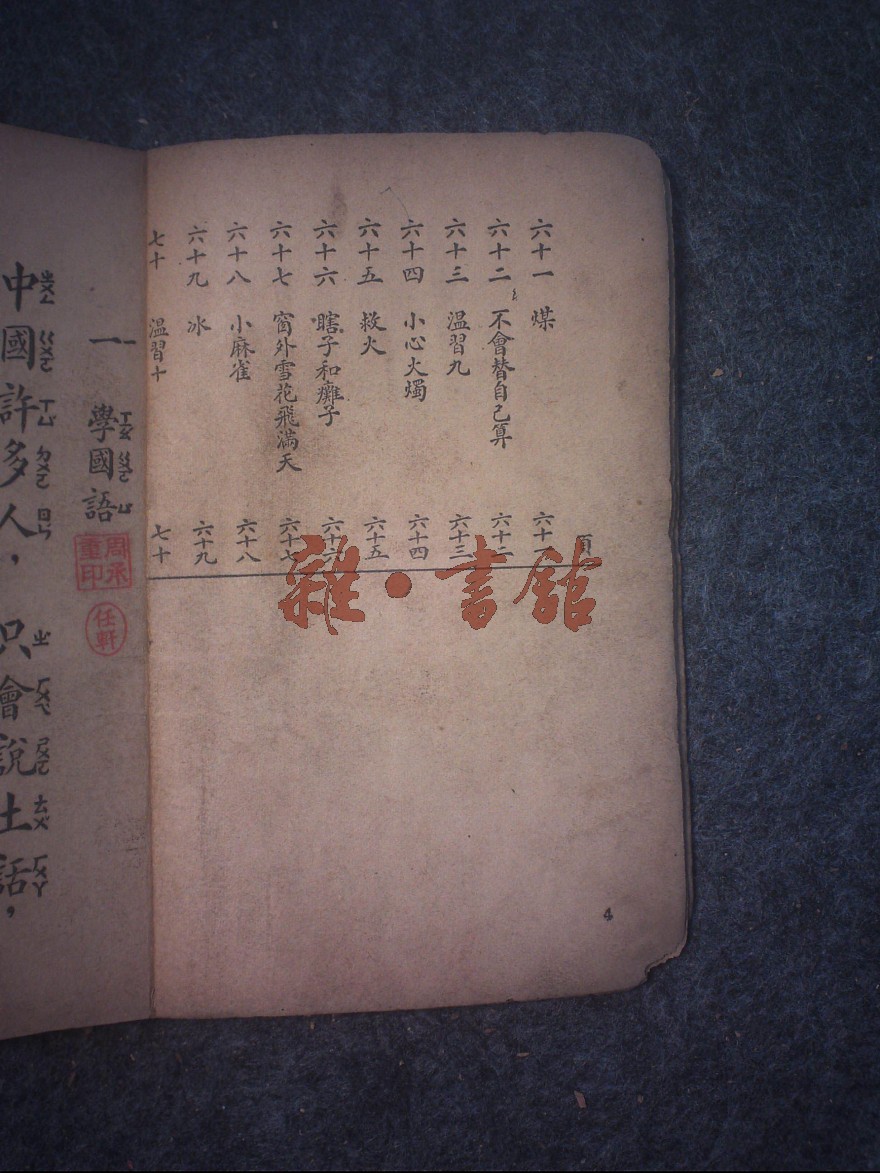 頁
六十一 煤 六十一
六十二 不會替自己算 六十二
六十三 溫習九 六十三
六十四 小心火燭 六十四
六十五 救火 六十五
六十六 瞎子和癱子 六十六
六十七 窗外雪花飛滿天 六十七
六十八 小麻雀 六十八
六十九 冰 六十九
七十 溫習十 七十
4
一 學國語
ㄒㄩㄝ ㄍㄨㄛ ㄩ
周承重印
任軒
中國許多人，只會說土話，
ㄓㄨㄥ ㄍㄨㄛ ㄒㄩ ㄉㄨㄛ ㄖㄣ ㄓ ㄏㄨㄟ ㄕㄨㄛ ㄊㄨ ㄏㄨㄚ
雜·書館